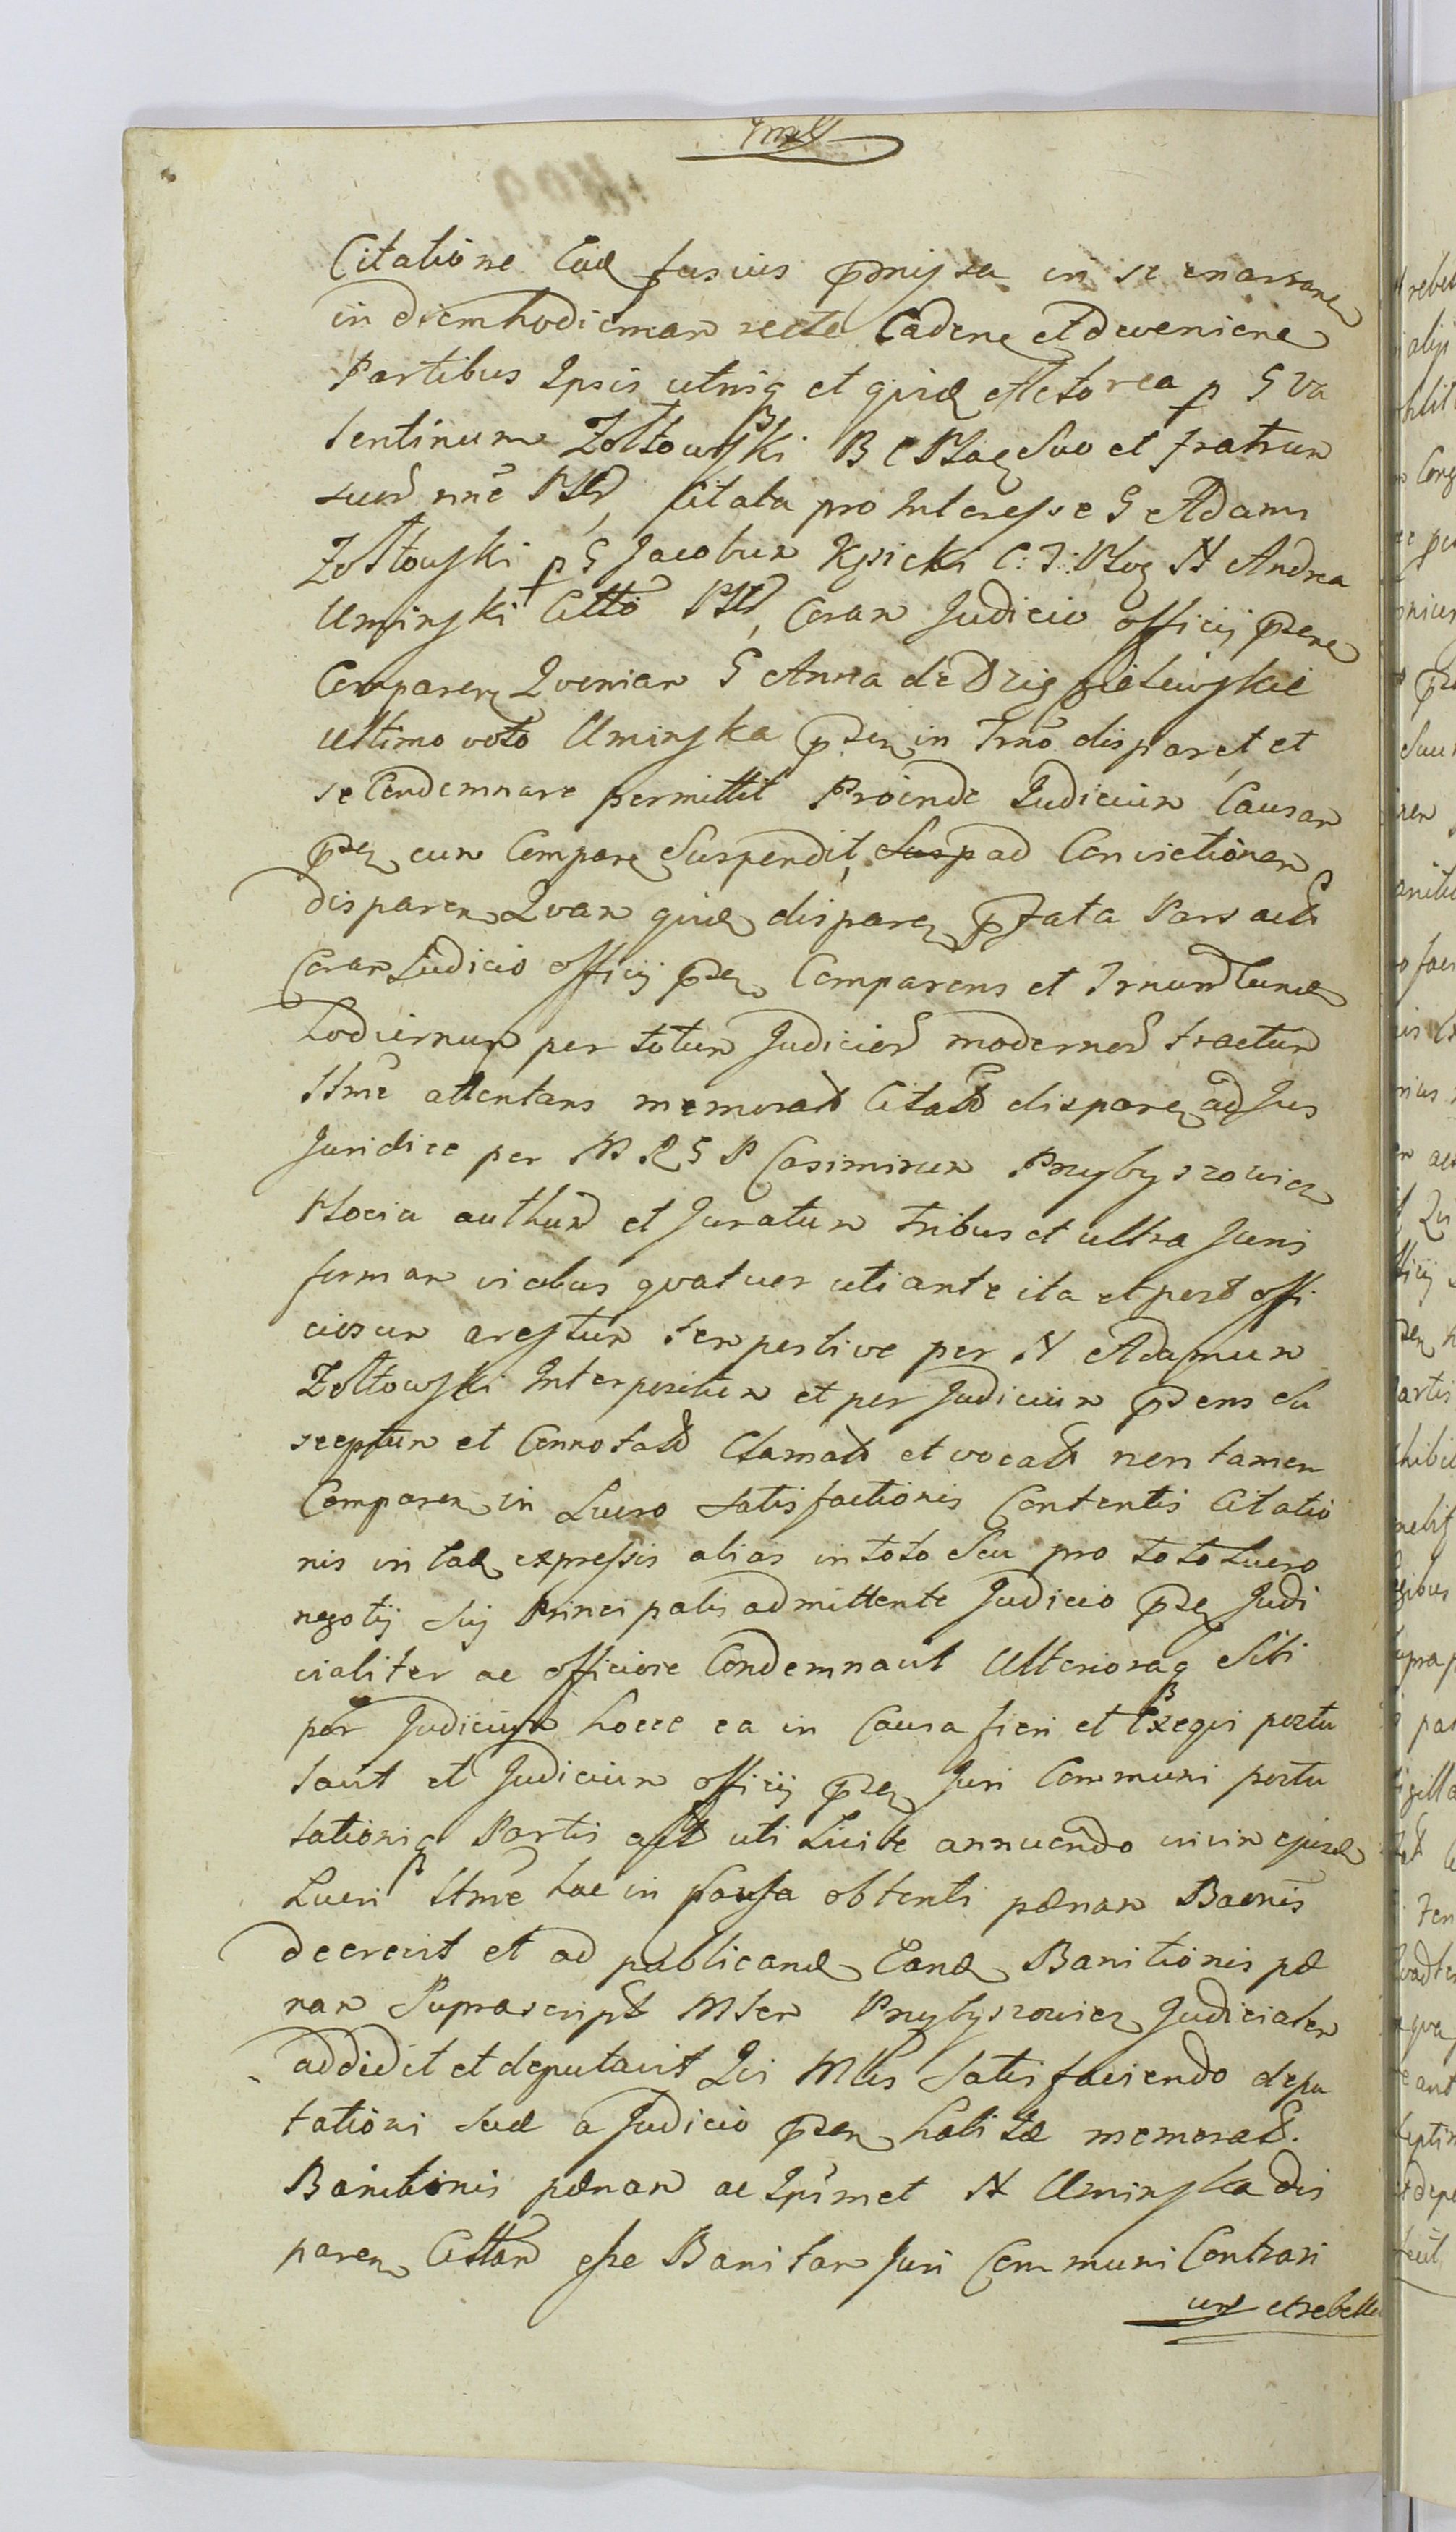 Citatione Ead fusius pmissa in se enarrane
in diem hodiernam recte Cadene et deveniene
Partibus Ipsis utrisq et quid Actorea p G Va
lentinum Zołtowski B C Plag Suo et fratrum
suor nne Plr, Citata pro Interesse G Adami
Zołtowski p G Jacobum Kszicki C: T: Plog N Andrea
Uminski Citto Plr, Coram Judicio officij psene
Comparen Qvoniam G Anna de
ultimo voto Uminska psen in Trno disparet, et
se Condemnare permittit Proinde Judicium Causam
psen cum Compare Suspendit, Susp ad Convictionem
disparen Qvam quid disparen pfata Pars act
Coram Judicio officij psen Comparens et Trnum
hodiernum per totum Judicior modernor tractum
Ittme attentans memorat Citat disparen ad Jus
Juridice per M R G P Casimirum Przybyszowicz
Mocia authund et Juratum tribus et ultra Juris
formam vicibus qvatuor uti ante ita et post offi
ciosum arestum tempestive per N Adamum
Zołtowski Interpositum et per Judicium psens Su
sceptum et Connotatt Clamatt et vocatt non tamen
Comparen in Lucro satisfactionis Contentis Citatio
nis in Ead expressis alias in toto Seu pro toto Lucro
negotij Sui Principalis admittente Judicio psen Judi
cialiter ac officiose Condemnavit Ulterioraq Sibi
per Judicium hocce ea in Causa fieri et Exeqvi postu
lavit et Judicium officij psen Juri Communi postu
lationiq Partis act uti Licite annuendo vim ejusd
Lucri Ittme hac in Causa obtenti pœnam Baenis
decrevit et ad publicand Eand Banitionis pœ
nam Suprascript Mlem Przybyszowicz Judicialem
addidit et deputavit Qui Mlis Satisfaciendo depu
tationi suæ a Judicio psen habitæ memorat.
Banitionis pœnam ac Ipsmet N Uminska dis
paren Cittam esse Banitam Juri Communi Contrari
um et rebelle